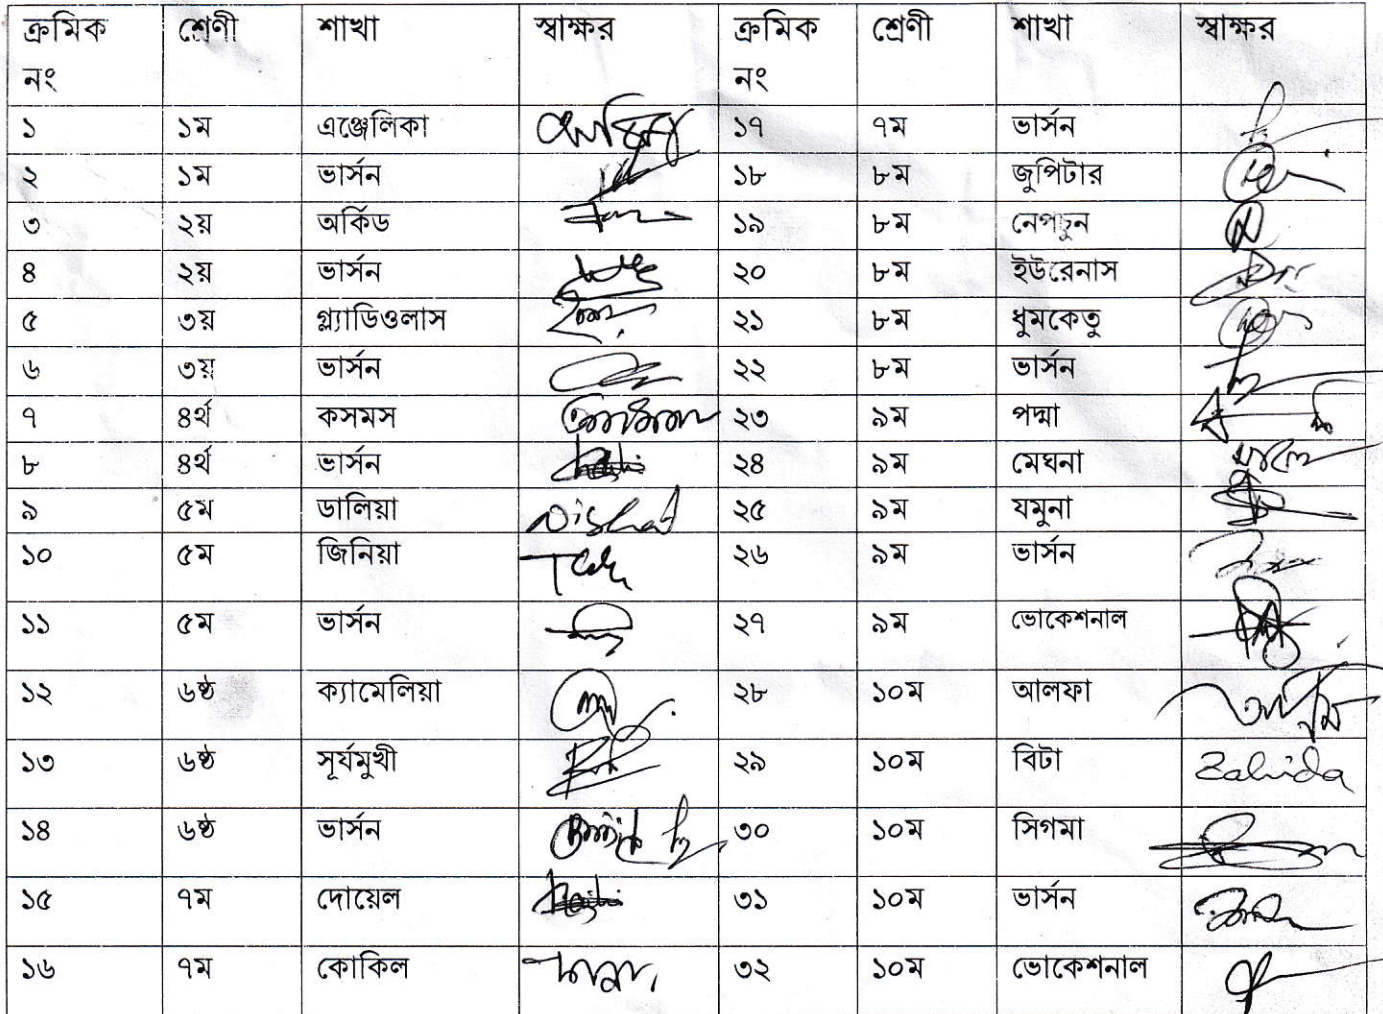 ক্রমিক নং শ্রেণী শাখা স্বাক্ষর ক্রমিক নং শ্রেণী শাখা স্বাক্ষর
১ ১ম এঞ্জেলিকা ১৭ ৭ম ভার্সন
২ ১ম ভার্সন ১৮ ৮ম জুপিটার
৩ ২য় অর্কিড ১৯ ৮ম নেপচুন
৪ ২য় ভার্সন ২০ ৮ম ইউরেনাস
৫ ৩য় গ্ল্যাডিওলাস ২১ ৮ম ধুমকেতু
৬ ৩য় ভার্সন ২২ ৮ম ভার্সন
৭ ৪র্থ কসমস ২৩ ৯ম পদ্মা
৮ ৪র্থ ভার্সন ২৪ ৯ম মেঘনা
৯ ৫ম ডালিয়া Nishat ২৫ ৯ম যমুনা
১০ ৫ম জিনিয়া ২৬ ৯ম ভার্সন
১১ ৫ম ভার্সন ২৭ ৯ম ভোকেশনাল
১২ ৬ষ্ঠ ক্যামেলিয়া ২৮ ১০ম আলফা
১৩ ৬ষ্ঠ সূর্যমুখী ২৯ ১০ম বিটা Zahida
১৪ ৬ষ্ঠ ভার্সন ৩০ ১০ম সিগমা
১৫ ৭ম দোয়েল ৩১ ১০ম ভার্সন
১৬ ৭ম কোকিল ৩২ ১০ম ভোকেশনাল